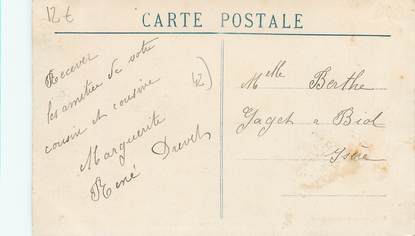 12€
CARTE POSTALE
Recever
les amitiés de votre
cousin et cousine
Marguerite
René Drevet
Melle Berthe
Gaget a Biol
Isère